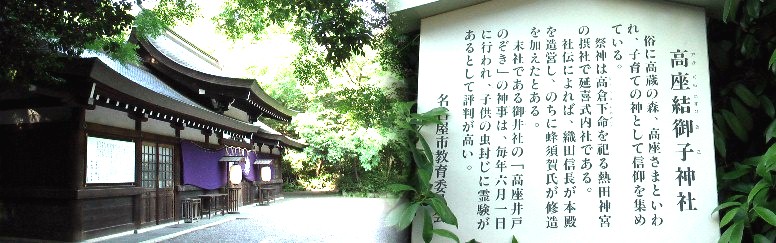 高座結御子神社
俗に高蔵の森、高座さまといわ
れ、子育ての神として信仰を集め
ている。
祭神は高倉下命を祀る熱田神宮
の摂社で延喜式内社である。
社伝によれば、織田信長が本殿
を造営し、のちに蜂須賀氏が修造
を加えたとある。
末社である御井社の「高座井戸
のぞき」の神事は、毎年六月一日
に行われ、子供の虫封じに霊験が
あるとして評判が高い。
名古屋市教育委員会